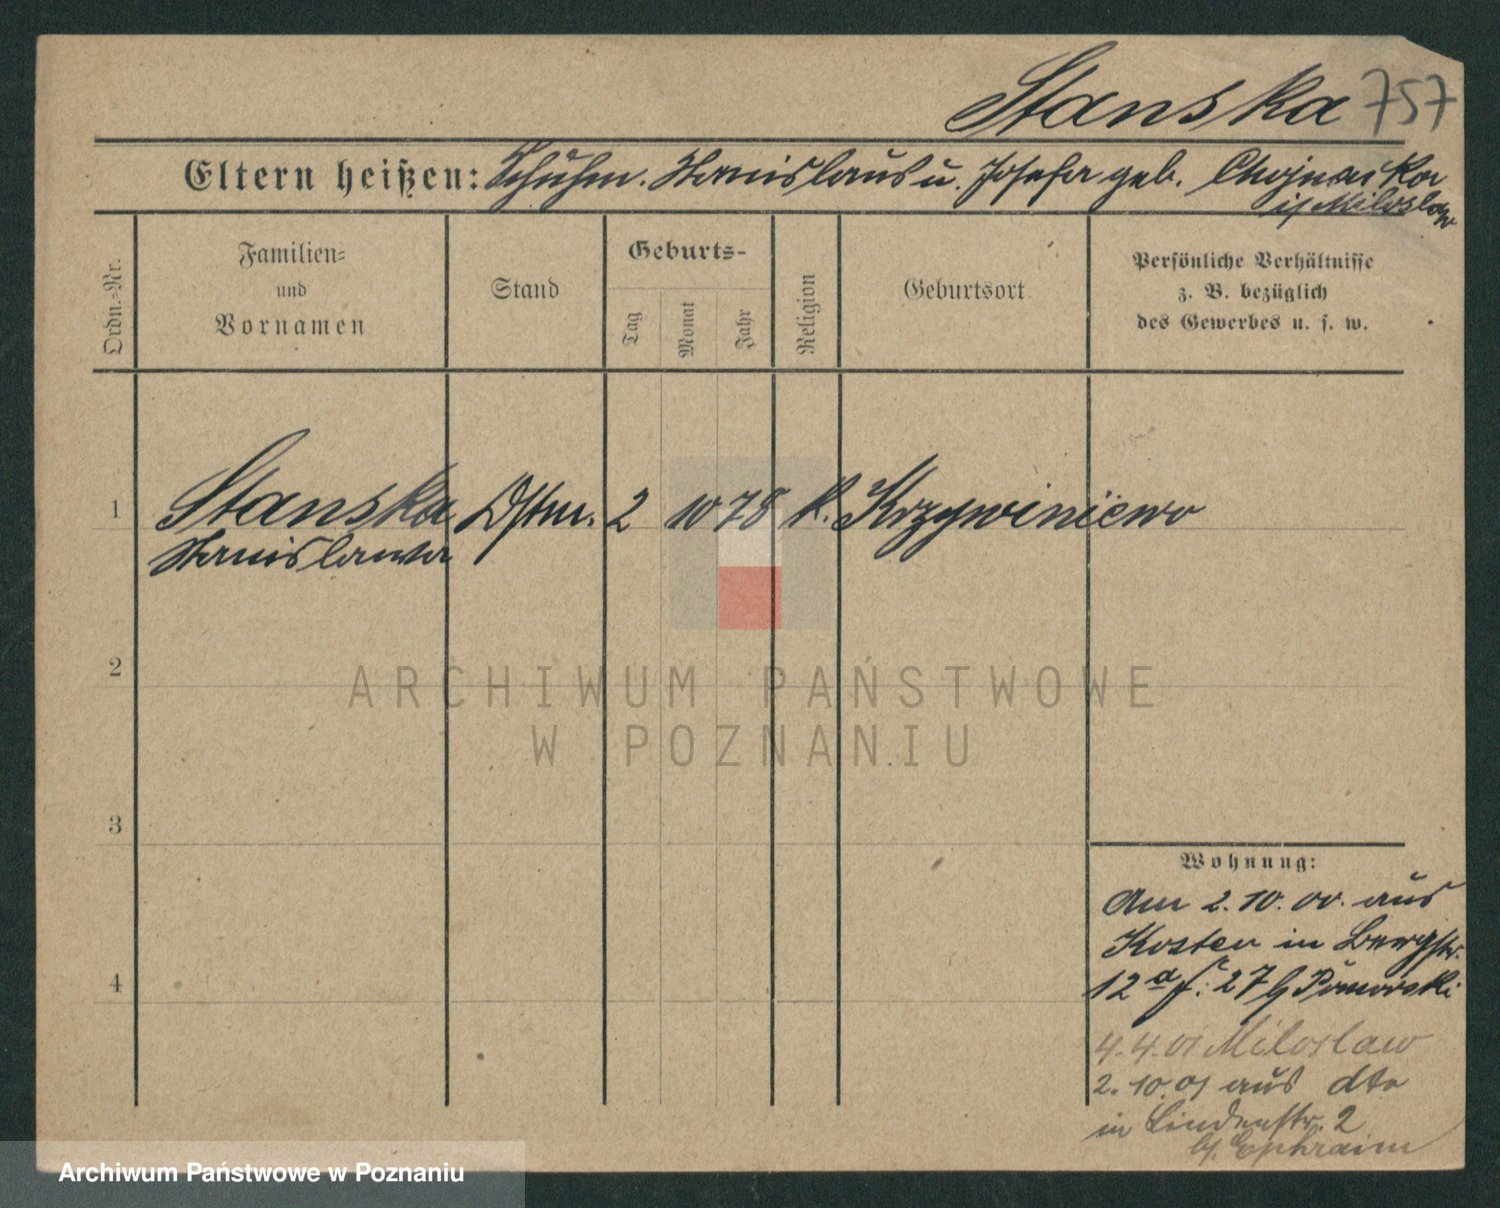 Stanska 757
Eltern heißen: Schuhm. Stanislaus u. Josefa geb. Chojnacka
in Miloslaw
Ordn.-Nr.
Familien-
und
Vornamen
Stand
Geburts-
Tag
Monat
Jahr
Religion
Geburtsort
Persönliche Verhältnisse
z. B. bezüglich
des Gewerbes u. s. w.
1 Stanska 2 10 78 k. Krzywiniewo
Stanislawa
2
ARCHIWUM PAŃSTWOWE
W POZNANIU
3
4
Wohnung:
Am 2. 10. 00. aus
Kosten in Bergstr.
12a f: 27 b Pomorski
4. 4. 01 Miloslaw
2. 10. 01 aus dto
in Lindenstr. 2
b. Ephraim
Archiwum Państwowe w Poznaniu